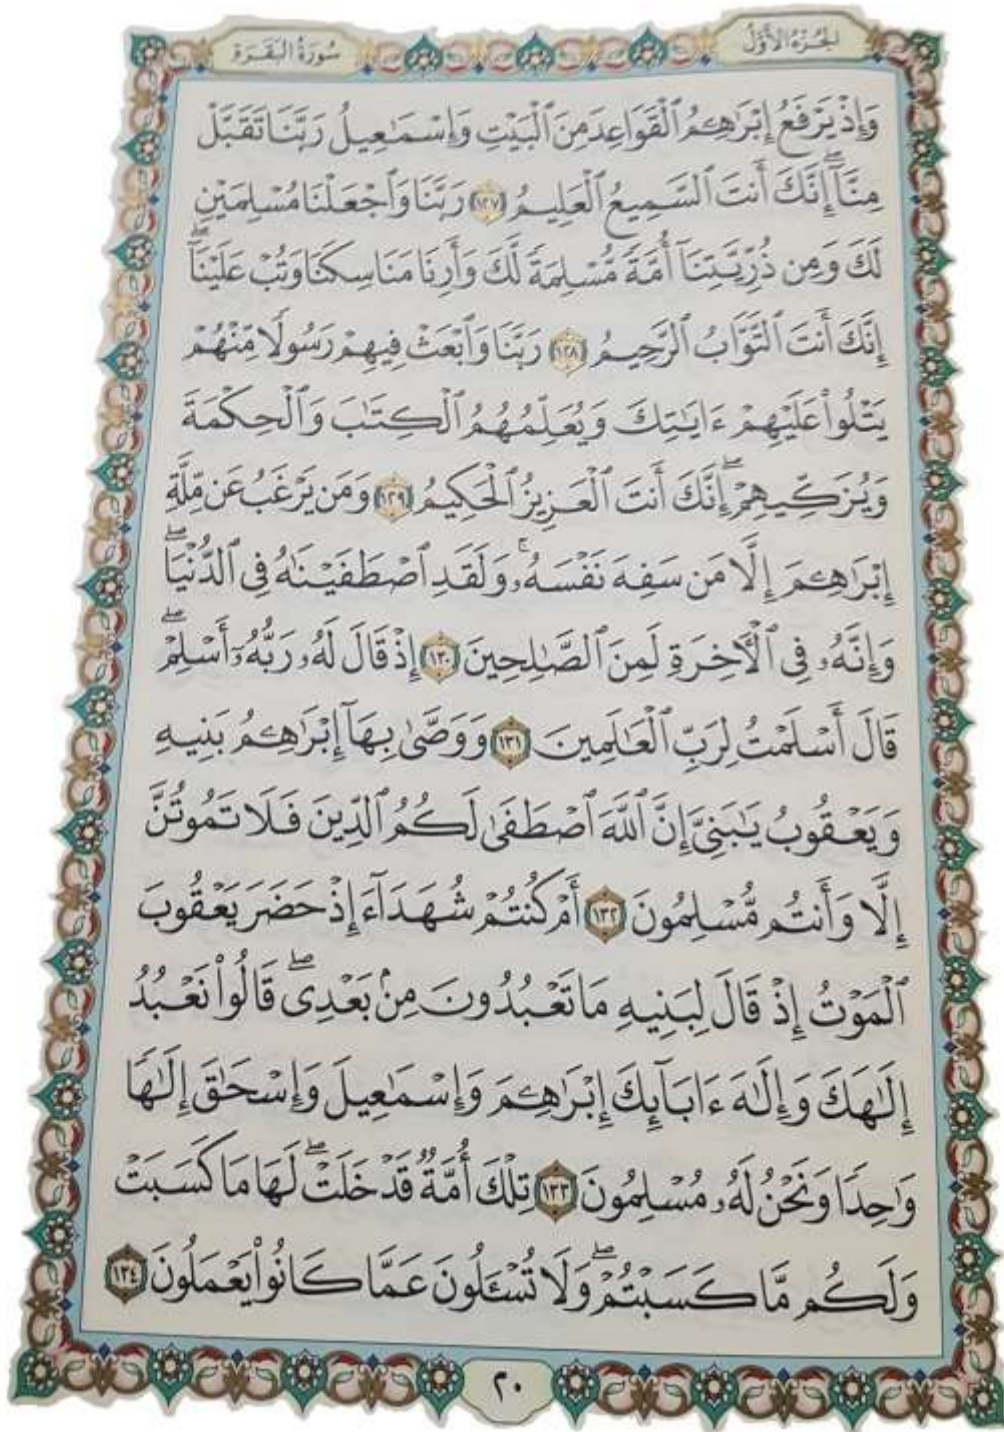 الجزء الأول
سورة البقرة
وَإِذْ يَرْفَعُ إِبْرَٰهِـۧمُ ٱلْقَوَاعِدَ مِنَ ٱلْبَيْتِ وَإِسْمَٰعِيلُ رَبَّنَا تَقَبَّلْ
مِنَّآۖ إِنَّكَ أَنتَ ٱلسَّمِيعُ ٱلْعَلِيمُ ١٢٧ رَبَّنَا وَٱجْعَلْنَا مُسْلِمَيْنِ
لَكَ وَمِن ذُرِّيَّتِنَآ أُمَّةً مُّسْلِمَةً لَّكَ وَأَرِنَا مَنَاسِكَنَا وَتُبْ عَلَيْنَآۖ
إِنَّكَ أَنتَ ٱلتَّوَّابُ ٱلرَّحِيمُ ١٢٨ رَبَّنَا وَٱبْعَثْ فِيهِمْ رَسُولًا مِّنْهُمْ
يَتْلُوا۟ عَلَيْهِمْ ءَايَٰتِكَ وَيُعَلِّمُهُمُ ٱلْكِتَٰبَ وَٱلْحِكْمَةَ
وَيُزَكِّيهِمْۖ إِنَّكَ أَنتَ ٱلْعَزِيزُ ٱلْحَكِيمُ ١٢٩ وَمَن يَرْغَبُ عَن مِّلَّةِ
إِبْرَٰهِـۧمَ إِلَّا مَن سَفِهَ نَفْسَهُۥۚ وَلَقَدِ ٱصْطَفَيْنَٰهُ فِى ٱلدُّنْيَاۖ
وَإِنَّهُۥ فِى ٱلْـَٔاخِرَةِ لَمِنَ ٱلصَّٰلِحِينَ ١٣٠ إِذْ قَالَ لَهُۥ رَبُّهُۥٓ أَسْلِمْۖ
قَالَ أَسْلَمْتُ لِرَبِّ ٱلْعَٰلَمِينَ ١٣١ وَوَصَّىٰ بِهَآ إِبْرَٰهِـۧمُ بَنِيهِ
وَيَعْقُوبُ يَٰبَنِىَّ إِنَّ ٱللَّهَ ٱصْطَفَىٰ لَكُمُ ٱلدِّينَ فَلَا تَمُوتُنَّ
إِلَّا وَأَنتُم مُّسْلِمُونَ ١٣٢ أَمْ كُنتُمْ شُهَدَآءَ إِذْ حَضَرَ يَعْقُوبَ
ٱلْمَوْتُ إِذْ قَالَ لِبَنِيهِ مَا تَعْبُدُونَ مِنۢ بَعْدِىۖ قَالُوا۟ نَعْبُدُ
إِلَٰهَكَ وَإِلَٰهَ ءَابَآئِكَ إِبْرَٰهِـۧمَ وَإِسْمَٰعِيلَ وَإِسْحَٰقَ إِلَٰهًا
وَٰحِدًا وَنَحْنُ لَهُۥ مُسْلِمُونَ ١٣٣ تِلْكَ أُمَّةٌ قَدْ خَلَتْۖ لَهَا مَا كَسَبَتْ
وَلَكُم مَّا كَسَبْتُمْۖ وَلَا تُسْـَٔلُونَ عَمَّا كَانُوا۟ يَعْمَلُونَ ١٣٤
٢٠